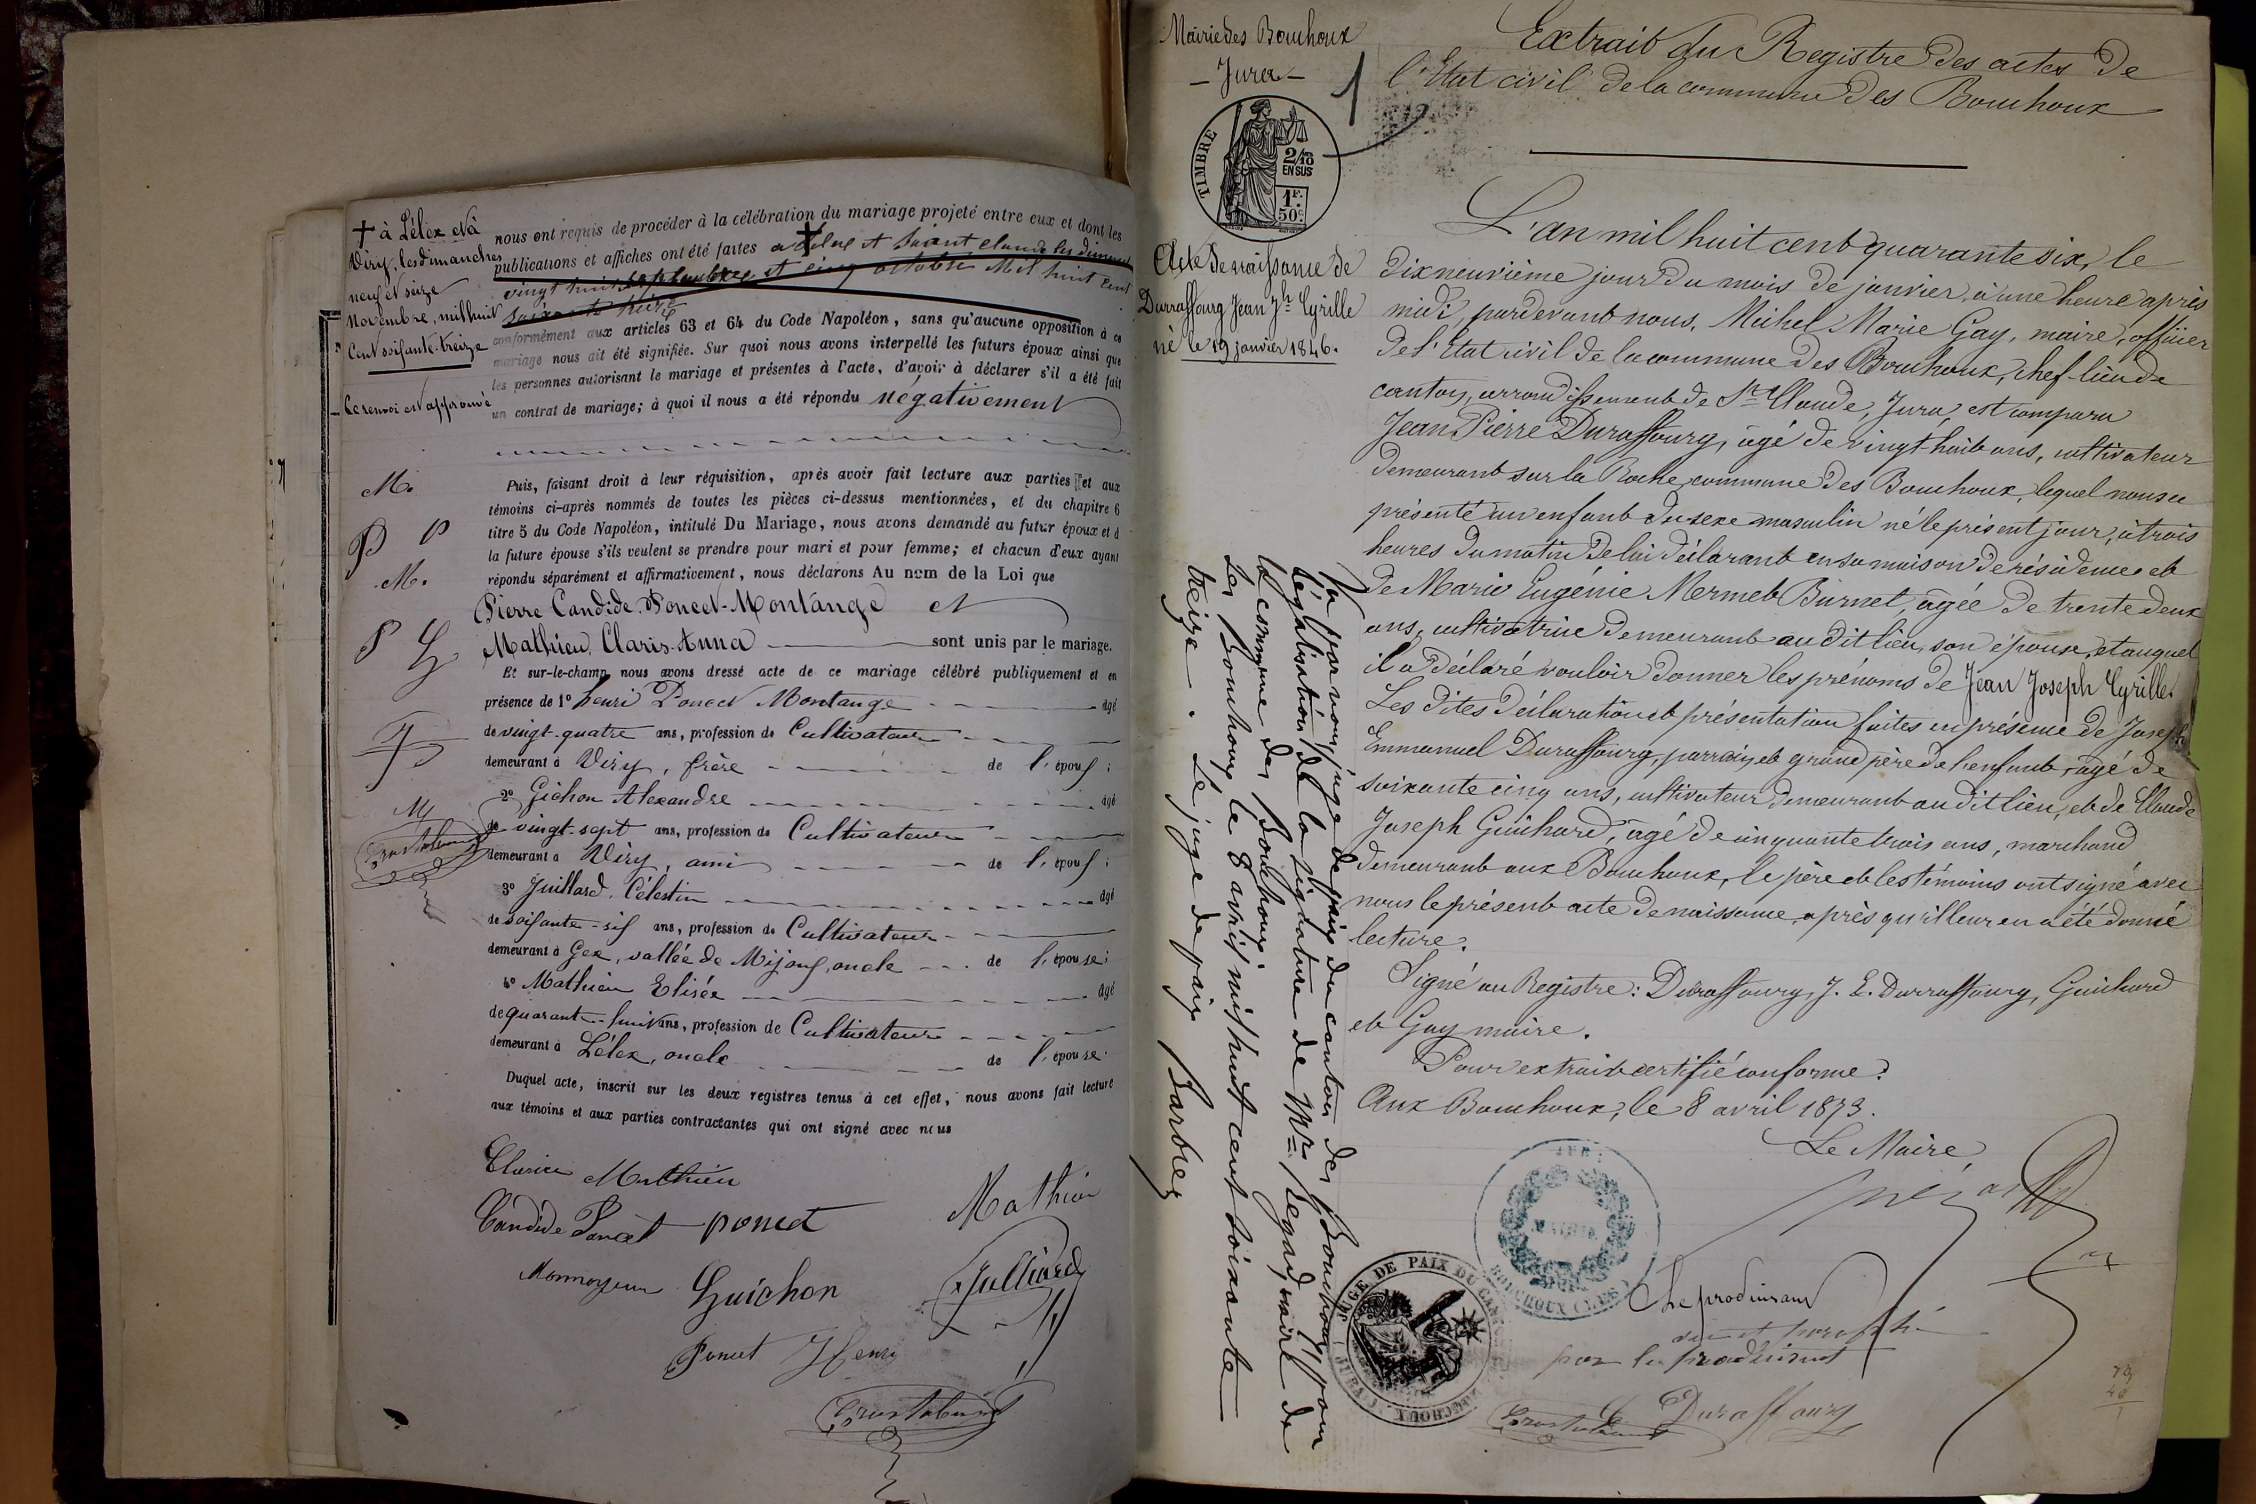 + à Lélex et à
Viry, les dimanches
neuf et seize
Novembre, mil huit
Cent soixante-treize
Ce renvoi est approuvé
nous ont requis de procéder à la célébration du mariage projeté entre eux et dont les
publications et affiches ont été faites a Lélex et Saint Claude les dimanches
vingt huit septembre et cinq octobre Mil huit cent
soixante treize
conformément aux articles 63 et 64 du Code Napoléon, sans qu'aucune opposition à ce
mariage nous ait été signifiée. Sur quoi nous avons interpellé les futurs époux ainsi que
les personnes autorisant le mariage et présentes à l'acte, d'avoir à déclarer s'il a été fait
un contrat de mariage; à quoi il nous a été répondu négativement
Puis, faisant droit à leur réquisition, après avoir fait lecture aux parties et aux
témoins ci-après nommés de toutes les pièces ci-dessus mentionnées, et du chapitre 6
titre 5 du Code Napoléon, intitulé Du Mariage, nous avons demandé au futur époux et à
la future épouse s'ils veulent se prendre pour mari et pour femme; et chacun d'eux ayant
répondu séparément et affirmativement, nous déclarons Au nom de la Loi que
Pierre Candide Poncet-Montange et
Mathieu Claris-Anna sont unis par le mariage.
Et sur-le-champ nous avons dressé acte de ce mariage célébré publiquement et en
présence de 1º henri Poncet Montange âgé
de vingt-quatre ans, profession de Cultivateur
demeurant à Viry, frère de l'époux;
2º Gichon Alexandre âgé
de vingt-sept ans, profession de Cultivateur
demeurant à Viry, ami de l'époux;
3º Juillard Célestin âgé
de soixante-six ans, profession de Cultivateur
demeurant à Gex, vallée de Mijoux, oncle de l'épouse;
4º Mathieu Elisée âgé
de quarante-huit ans, profession de Cultivateur
demeurant à Lélex, oncle de l'épouse.
Duquel acte, inscrit sur les deux registres tenus à cet effet, nous avons fait lecture
aux témoins et aux parties contractantes qui ont signé avec nous
M.
P P
M.
P G
J
M
Clarice Mathieu
Mathieu
Candide Poncet poncet
Monnoyeur Guichon
Julliard
Poncet Henri
Mairie des Bouchoux
- Jura -
1
TIMBRE
2/10
EN SUS
1F.
50c.
Acte de naissance de
Durraffourg Jean Jh Cyrille
né le 19 janvier 1846.
Extrait du Registre des actes de
l'Etat civil de la commune des Bouchoux
L'an mil huit cent quarante six, le
dix neuvième jour du mois de janvier, à une heure après
midi, pardevant nous, Michel Marie Gay, maire, officier
de l'Etat civil de la commune des Bouchoux, chef-lieu de
canton, arrondissement de St Claude, Jura, est comparu
Jean Pierre Duraffourg, âgé de vingt-huit ans, cultivateur
demeurant sur la Roche, commune des Bouchoux, lequel nous a
présenté un enfant du sexe masculin né le présent jour, à trois
heures du matin de lui déclarant en sa maison de résidence et
de Marie Eugénie Mermet Burnet, âgée de trente deux
ans, cultivatrice demeurant au dit lieu, son épouse, et auquel
il a déclaré vouloir donner les prénoms de Jean Joseph Cyrille.
Les dites déclaration et présentation faites en présence de Joseph
Emmanuel Duraffourg, parrain et grand père de l'enfant, âgé de
soixante cinq ans, cultivateur demeurant au dit lieu, et de Claude
Joseph Guichard, âgé de cinquante trois ans, marchand
demeurant aux Bouchoux, le père et les témoins ont signé avec
nous le présent acte de naissance, après qu'il leur en a été donné
lecture.
Signé au Registre: Duraffourg, J. E. Durraffourg, Guichard
et Gay maire.
Pour extrait certifié conforme.
Aux Bouchoux, le 8 avril 1873.
Le Maire,
MAIRIE
BOUCHOUX (LES)
JUGE DE PAIX DU CANTON
BOUCHOUX (JURA)
par le produisant
C Duraffourg
Vu par nous, juge de paix du canton des Bouchoux, pour
légalisation de la signature de Mr Regad, maire de
la commune des Bouchoux
Les Bouchoux, le 8 avril mil huit cent soixante
treize. Le juge de paix
Barbier